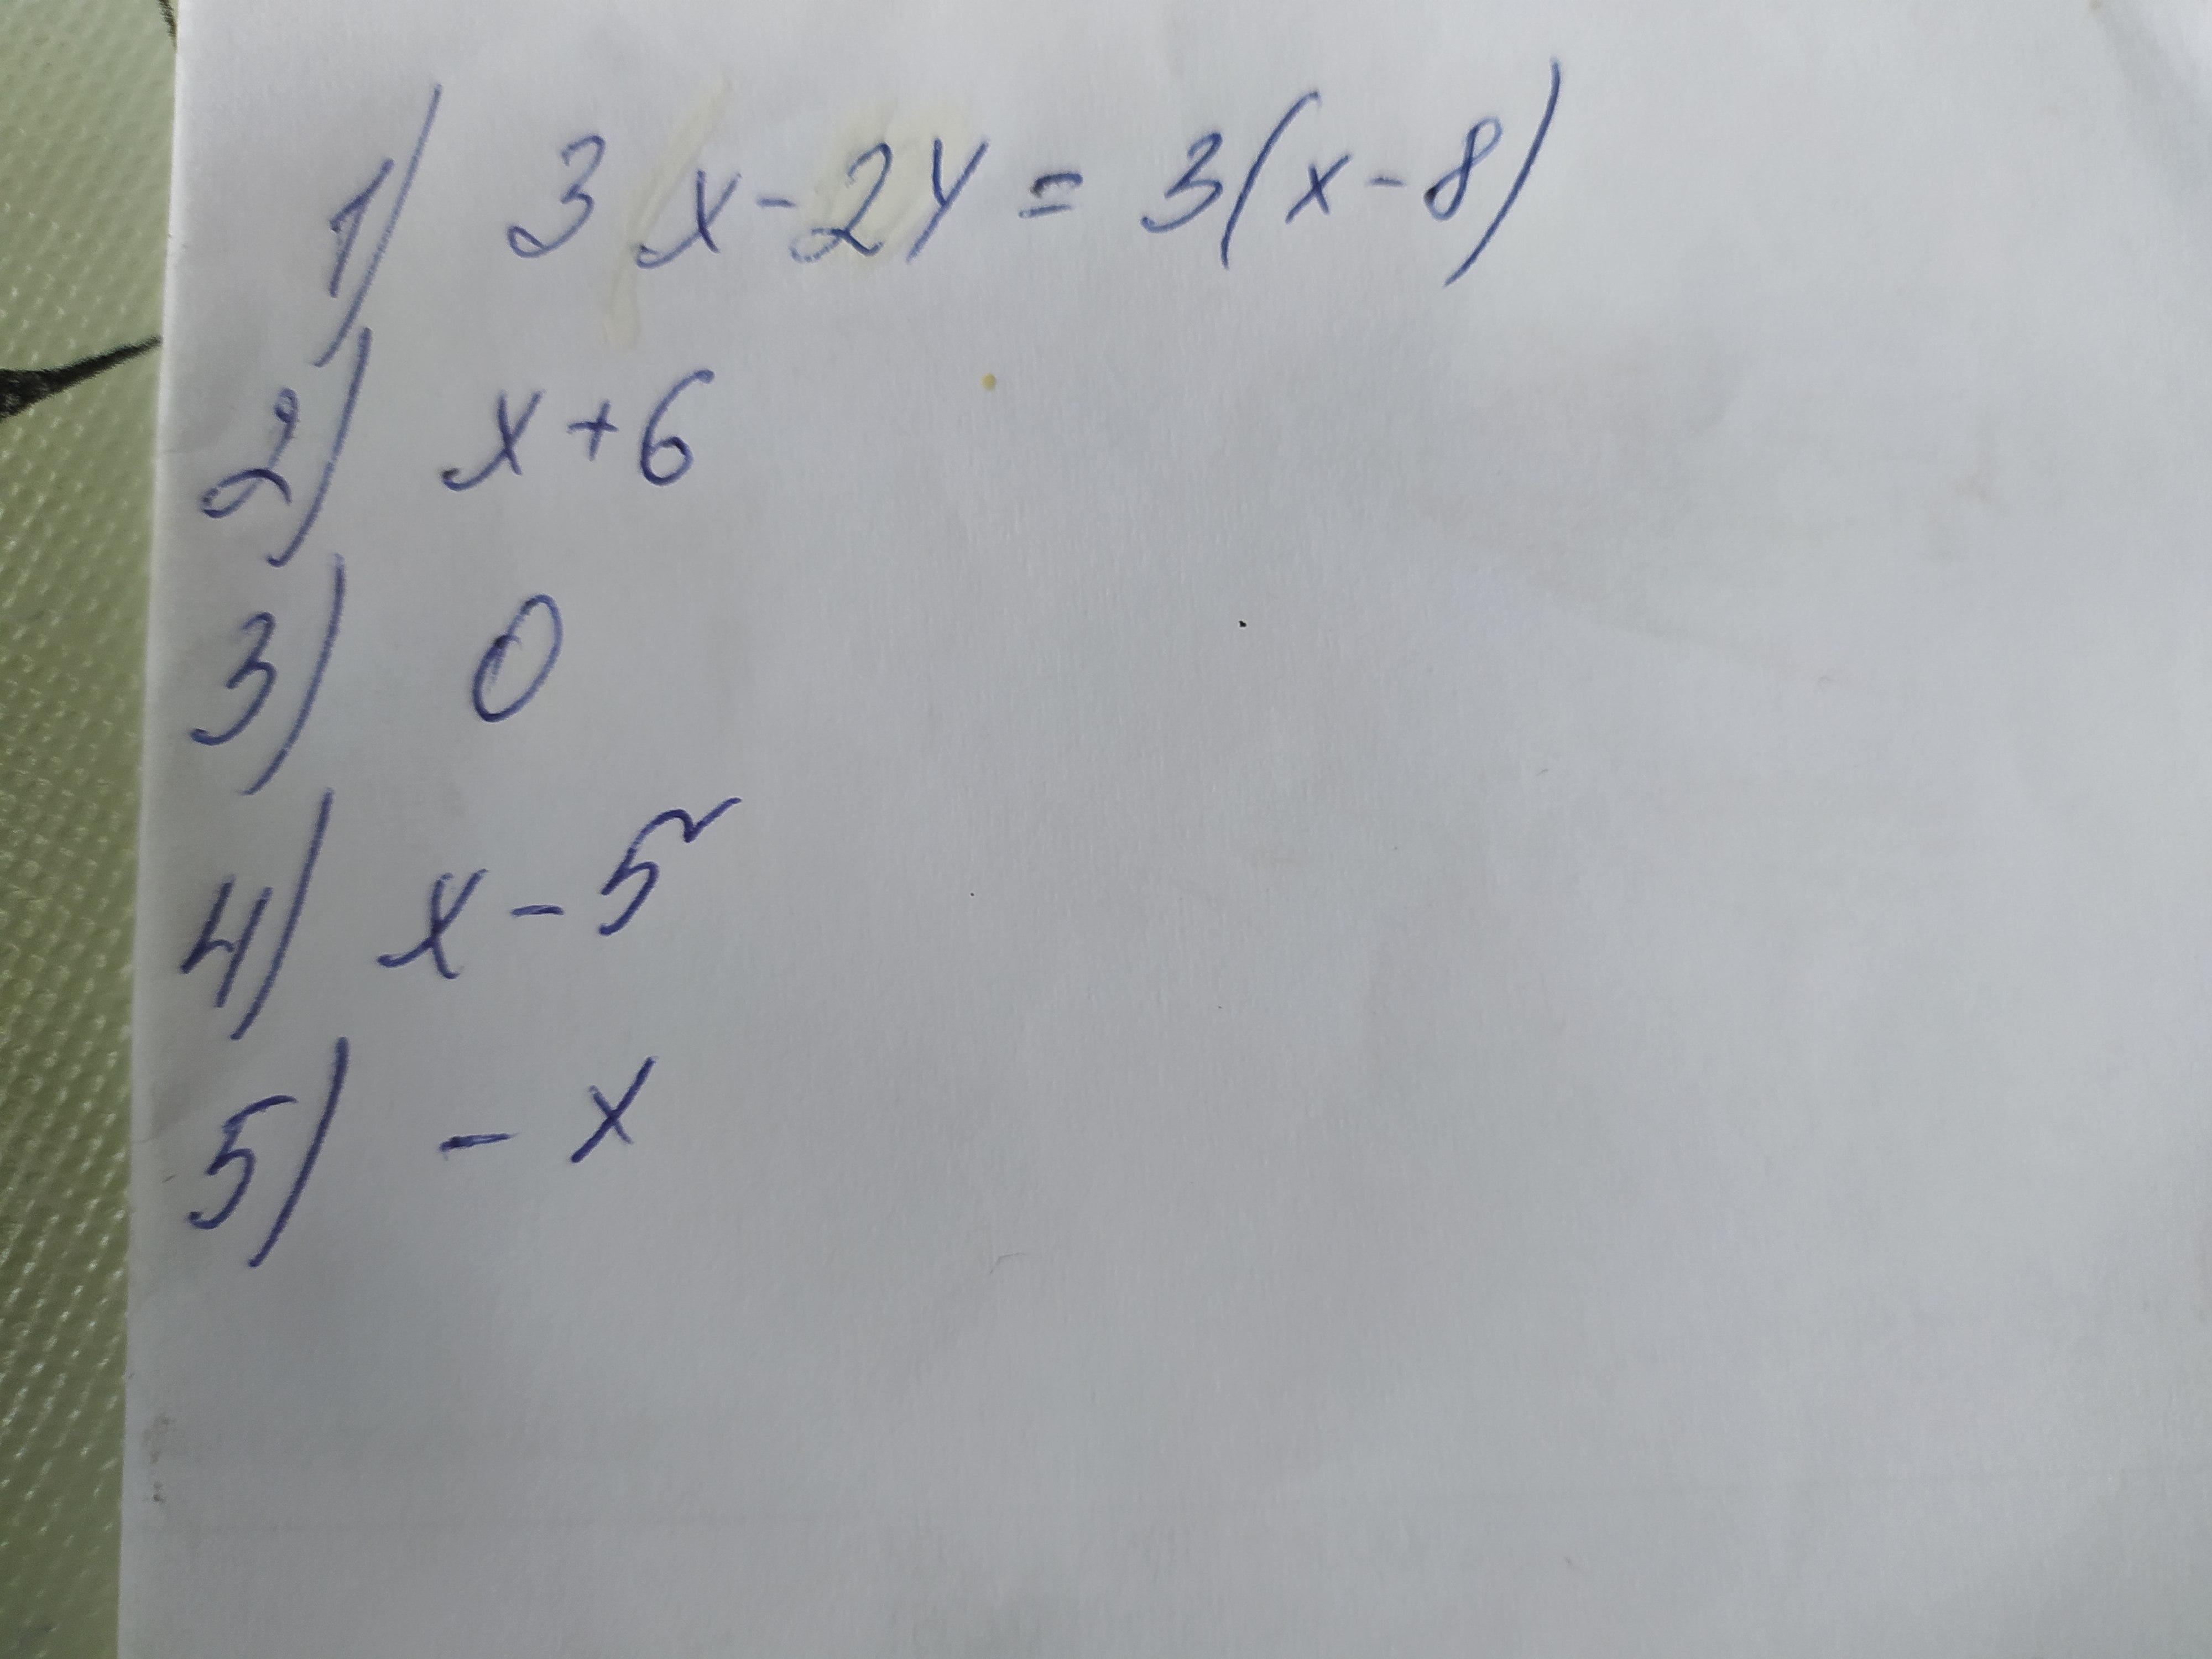 1) 3x-24 = 3(x-8)
2) x+6
3) 0
4) x-5
5) -x